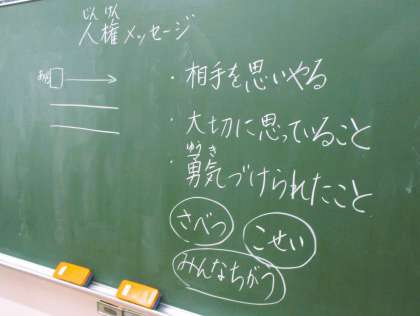 じんけん
人権メッセージ
・相手を思いやる
・大切に思っていること
ゆうき
・勇気づけられたこと
さべつ
こせい
みんなちがう